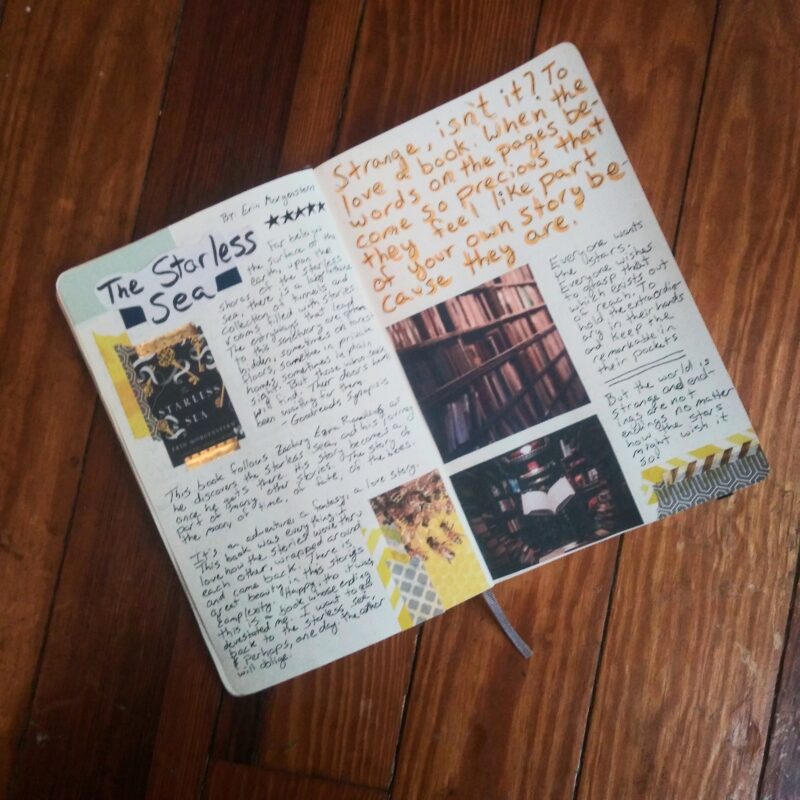 By: Erin Morgenstern
The Starless
Sea
Far below
the surface of the
earth, upon the
shores of the Starless
sea, there is a labyrinthine
collection of tunnels and
rooms filled with stories.
The entryways that lead
to this sanctuary are often
hidden, sometimes on forest
floors, sometimes in private
homes, sometimes in plain
sight. But those who seek
will find. Their doors have
been waiting for them.
- Goodreads Synopsis
STARLESS
SEA
ERIN MORGENSTERN
This book follows Zachary Ezra Rawlins as
he discovers the starless sea, and his journey
once he gets there. His story becomes a
part of many other stories. The story of
the moon, of time, of fate, of the bees.
It's an adventure, a fantasy, a love story.
This book was everything. I
love how the stories wove thru
each other, wrapped around
and came back. There is
great beauty in this story's
complexity. Happy, tho it was,
this is a book whose ending
devestated me. I want to go
back to the starless sea,
& perhaps, one day, the author
will oblige.
Strange, isn't it? To
love a book. When the
words on the pages be-
come so precious that
they feel like part
of your own story be-
cause they are.
Everyone wants
the stars.
Everyone wishes
to grasp that
which exists out
of reach. To
hold the extraordin-
ary in their hands
and keep the
remarkable in
their pockets
But the world is
strange and end-
ings are not
endings no matter
how the stars
might wish it
so.